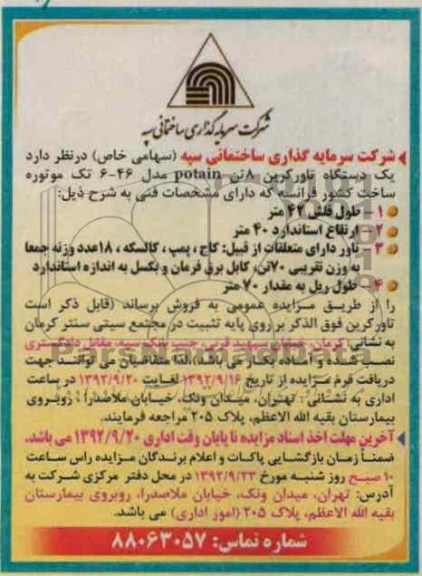 شرکت سرمایه گذاری ساختمانی سپه
شرکت سرمایه گذاری ساختمانی سپه (سهامی خاص) درنظر دارد
یک دستگاه تاورکرین ۸تن potain مدل ۴۶-۶ تک موتوره
ساخت کشور فرانسه که دارای مشخصات فنی به شرح ذیل:
۱- طول فلش ۴۲ متر
۲- ارتفاع استاندارد ۴۰ متر
۳- تاور دارای متعلقات از قبیل: کاج، پمپ، کالسکه، ۱۸عدد وزنه جمعا
به وزن تقریبی ۷۰تن، کابل برق فرمان و بکسل به اندازه استاندارد
۴- طول ریل به مقدار ۷۰ متر
را از طریق مزایده عمومی به فروش برساند (قابل ذکر است
تاورکرین فوق الذکر بر روی پایه تثبیت در مجتمع سیتی سنتر کرمان
به نشانی کرمان، خیابان شهید قرنی، جنب بانک سپه، مقابل دادگستری
نصب شده و آماده بکار می باشد)، لذا متقاضیان می توانند جهت
دریافت فرم مزایده از تاریخ ۱۳۹۲/۹/۱۶ لغایت ۱۳۹۲/۹/۲۰ در ساعت
اداری به نشانی: تهران، میدان ونک، خیابان ملاصدرا، روبروی
بیمارستان بقیه الله الاعظم، پلاک ۲۰۵ مراجعه فرمایند.
آخرین مهلت اخذ اسناد مزایده تا پایان وقت اداری ۱۳۹۲/۹/۲۰ می باشد.
ضمناً زمان بازگشایی پاکات و اعلام برندگان مزایده راس ساعت
۱۰ صبح روز شنبه مورخ ۱۳۹۲/۹/۲۳ در محل دفتر مرکزی شرکت به
آدرس: تهران، میدان ونک، خیابان ملاصدرا، روبروی بیمارستان
بقیه الله الاعظم، پلاک ۲۰۵ (امور اداری) می باشد.
شماره تماس: ۸۸۰۶۳۰۵۷